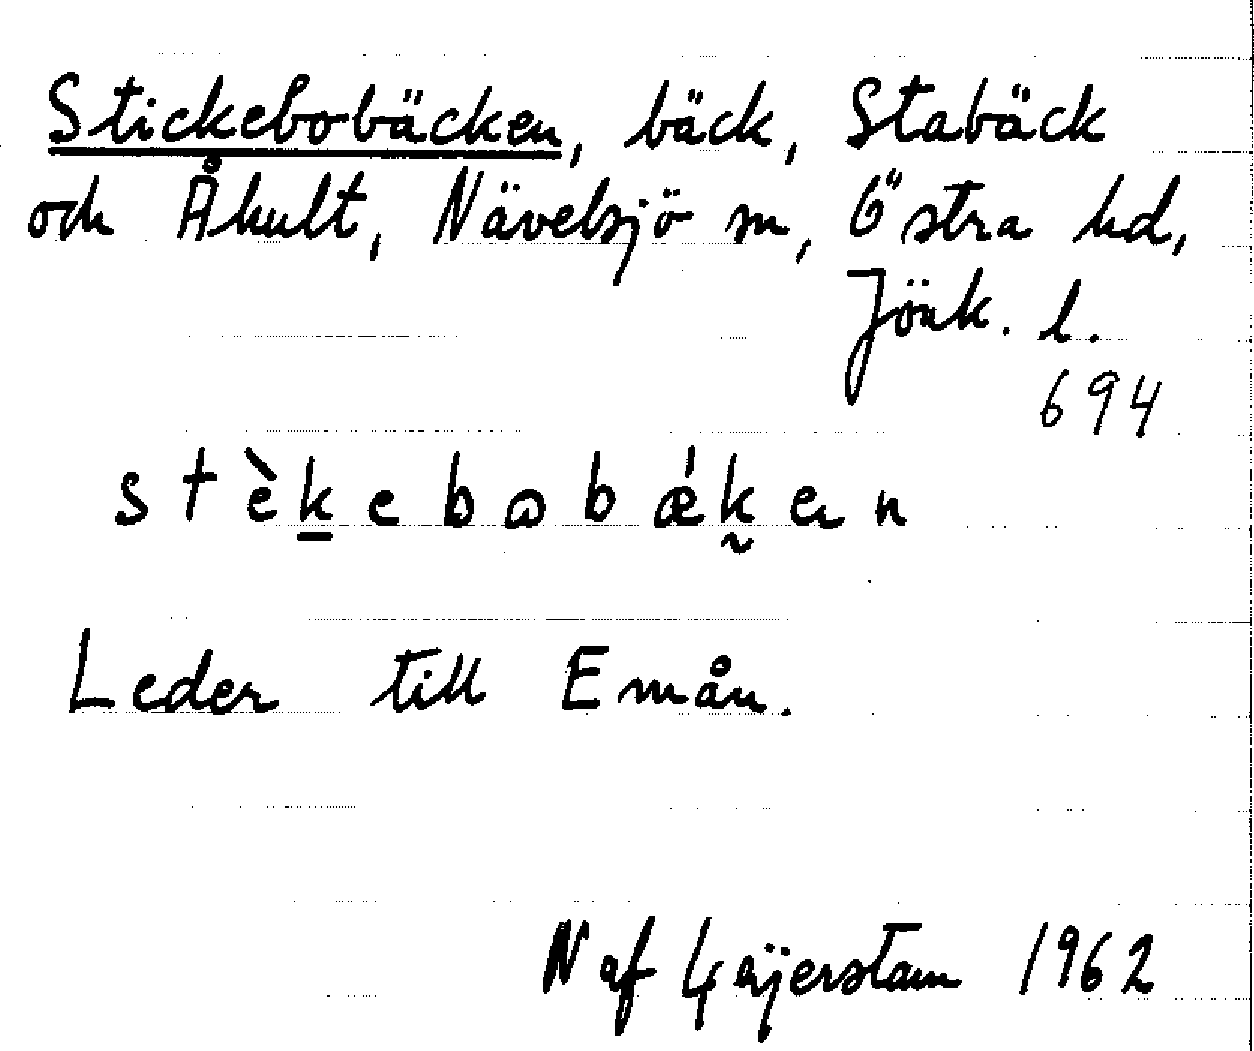 Stickebobäcken, bäck, Stabäck
och Åhult, Nävelsjö sn, Östra hd,
Jönk. l.
694
stèk̲ebɷbǽk̰en
Leder till Emån.
N af Geijerstam 1962